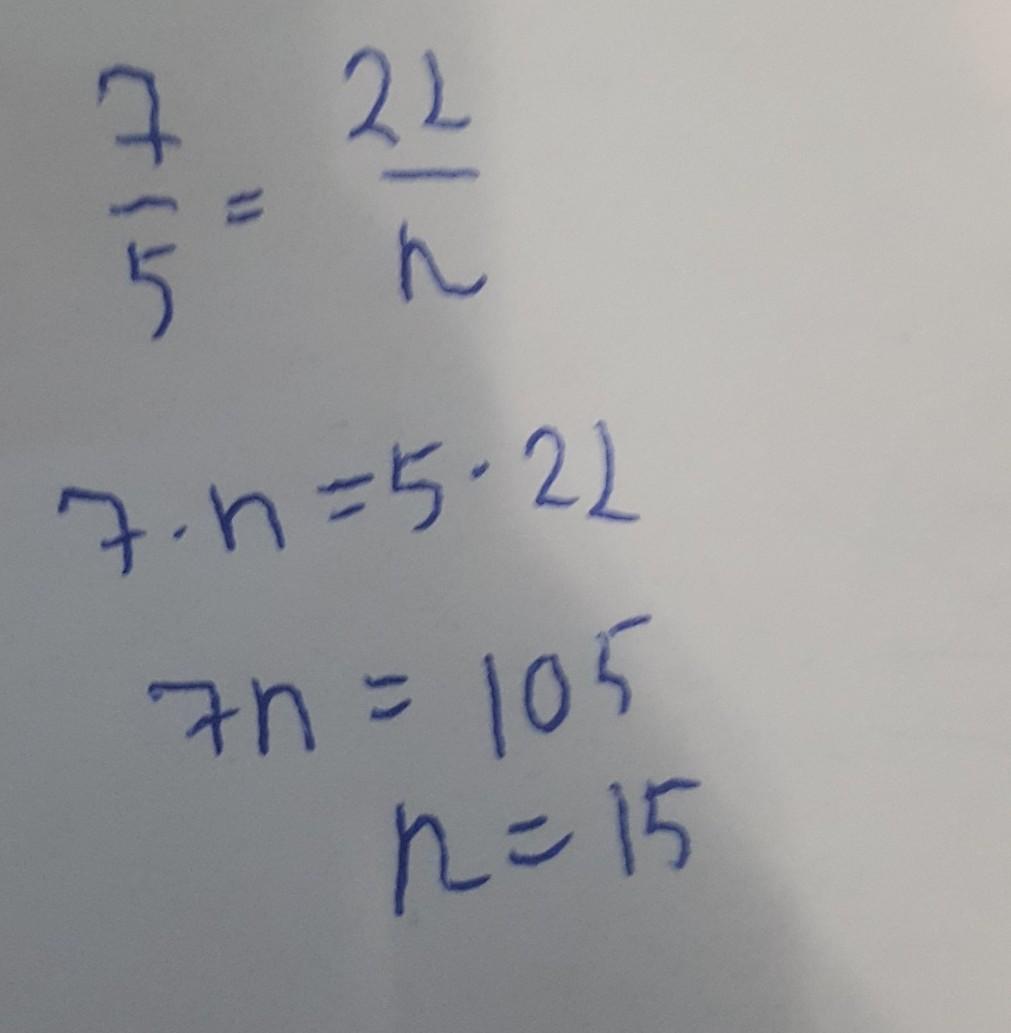 7/5 = 21/n
7·n = 5·21
7n = 105
n = 15